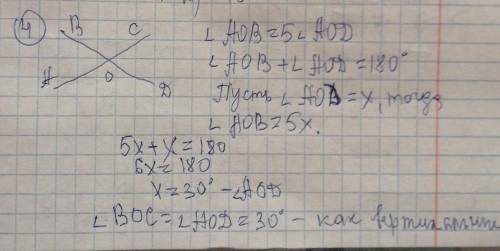 4
B C
A O D
∠AOB=5∠AOD
∠AOB+∠AOD=180°
Пусть ∠AOD=x, тогда
∠AOB=5x.
5x+x=180
6x=180
x=30° -∠AOD
∠BOC=∠AOD=30° - как